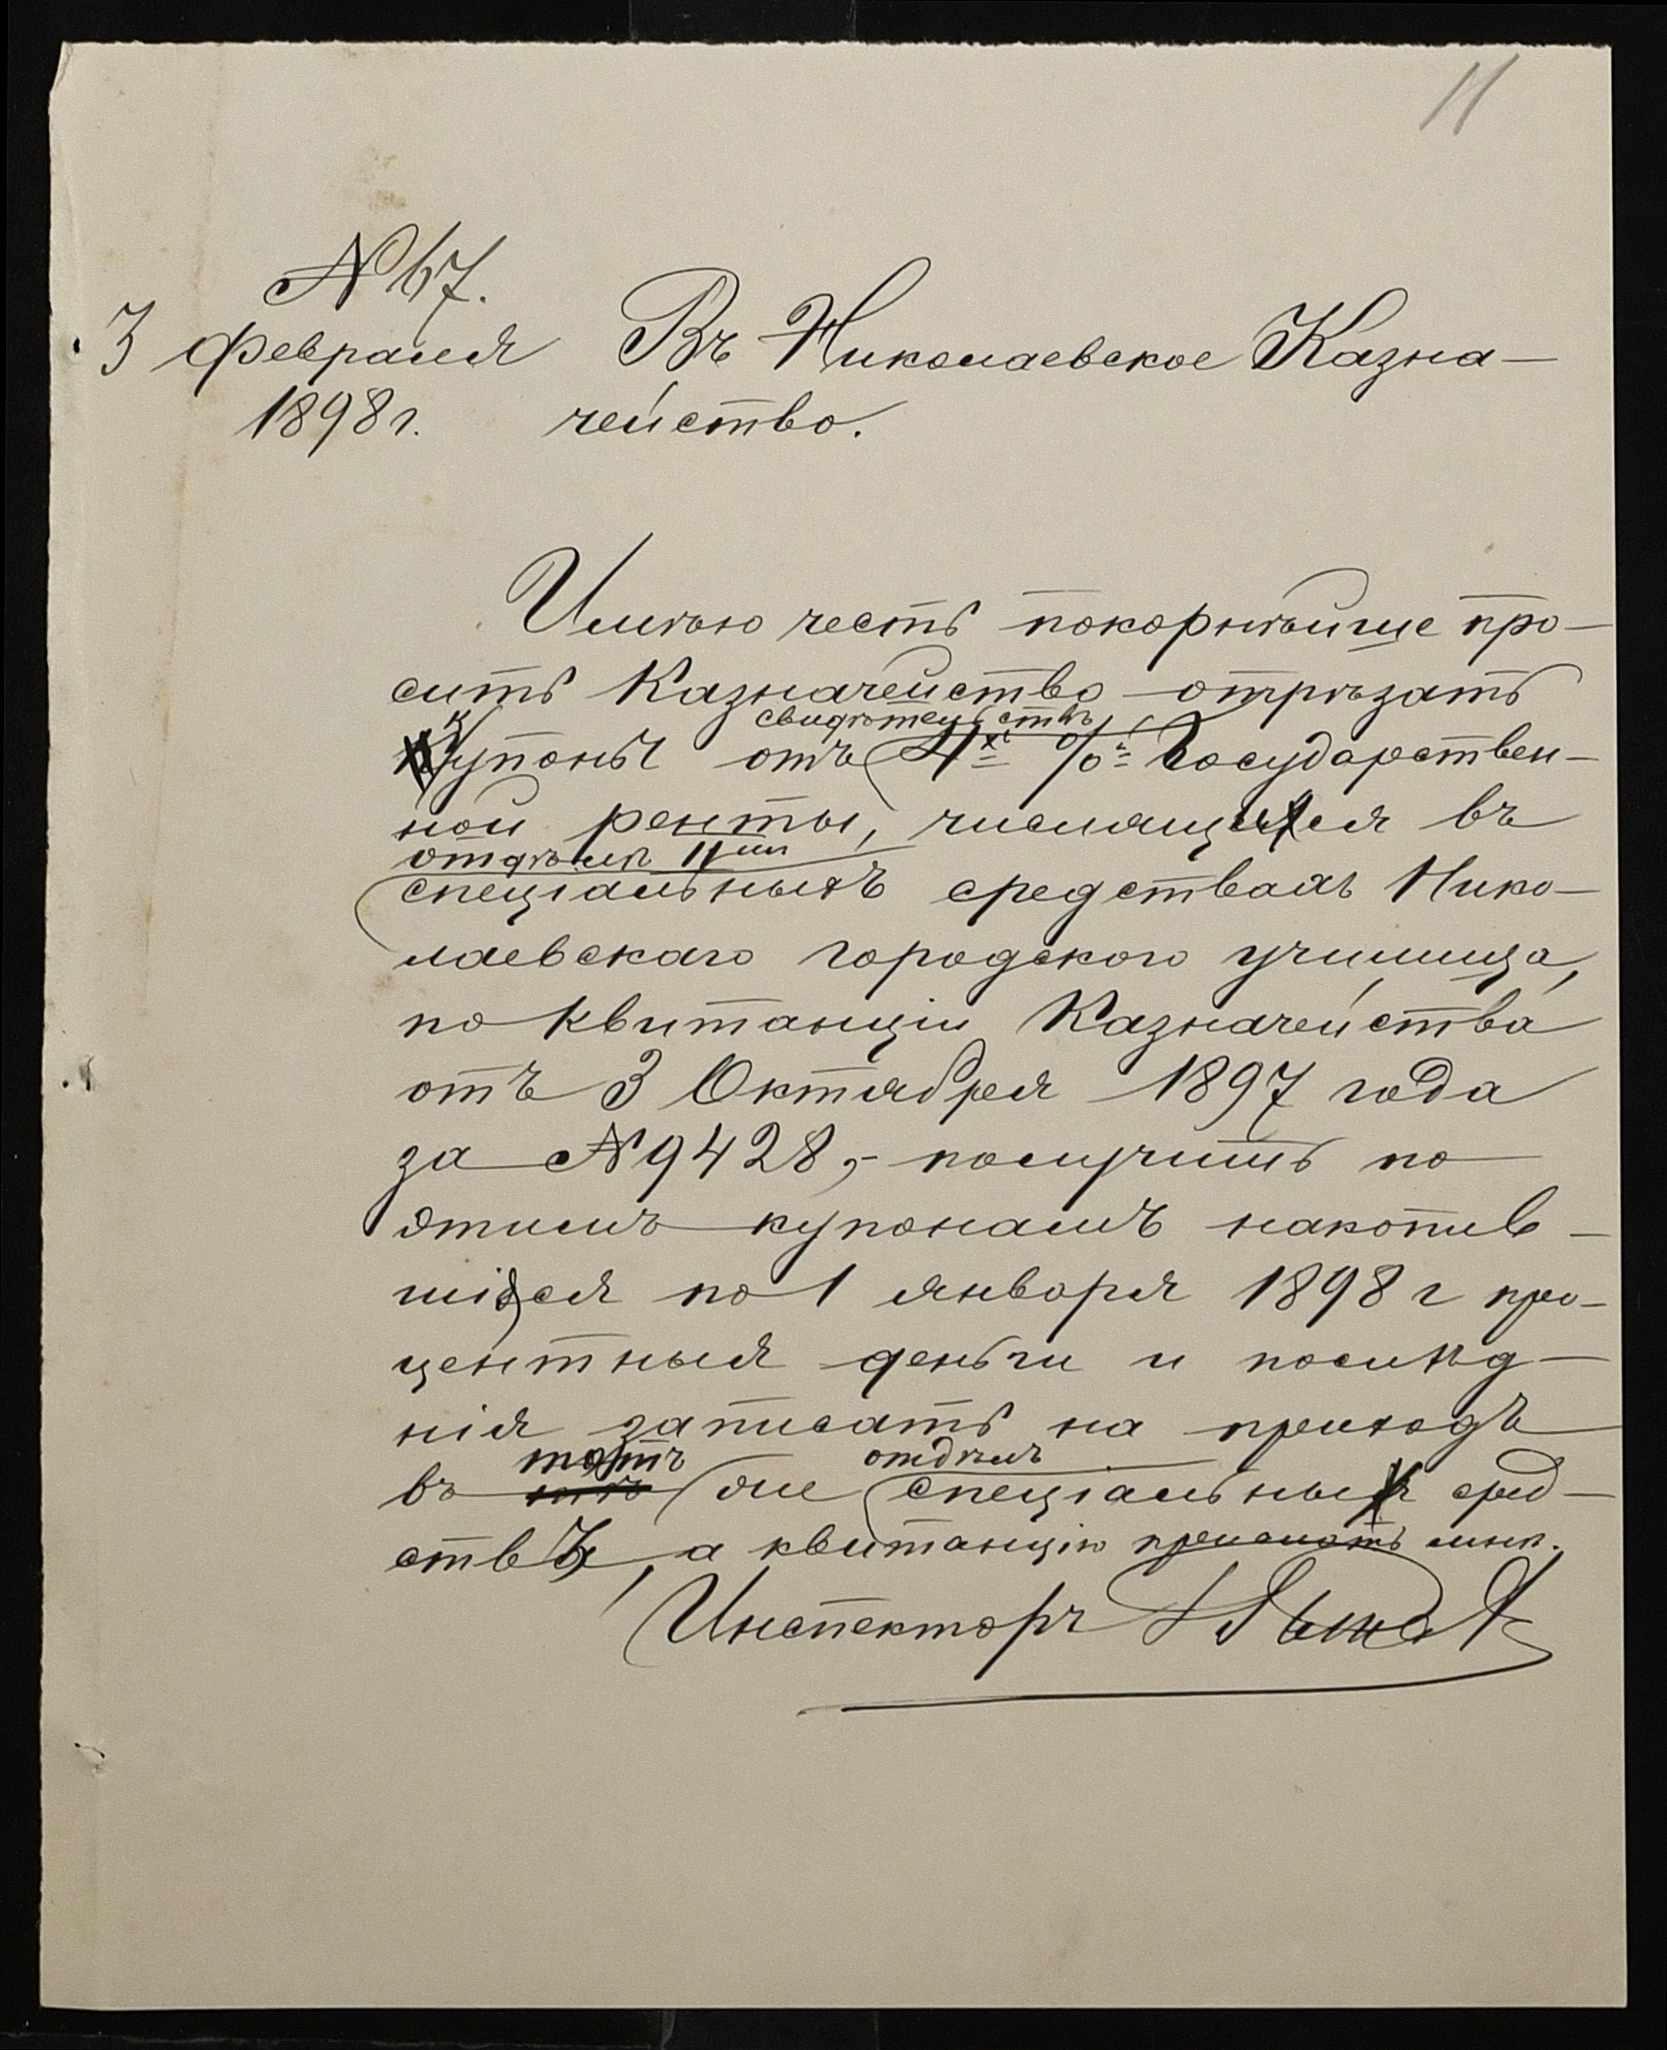 11
№ 67.
3 Февраля
1898 г.
Въ Николаевское Казна-
чейство.
Имѣю честь покорнѣйше про-
сить Казначейство отрѣзать
свидѣтельствъ
купоны отъ 4х % Государствен-
ной ренты, числящихся въ
отдѣлѣ II
спеціальныхъ средствахъ Нико-
лаевскаго городского училища,
по квитанціи Казначейства
отъ 3 Октября 1897 года
за № 9428,- получить по
этимъ купонамъ накопив-
шіяся по 1 января 1898 г про-
центныя деньги и послѣд-
нія записать на приходъ
тотъ отдѣлъ
въ же спеціальных сред-
ствъ, а квитанцію прислать мнѣ.
Инспекторъ